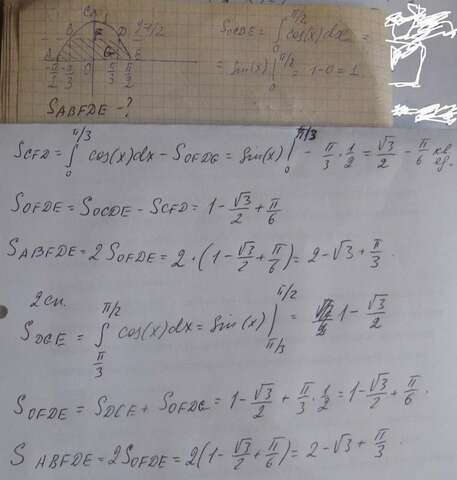 C 1 y=1/2
B F D
A G E
-π/2 -π/3 0 π/3 π/2
S_OCDE = ∫_0^{π/2} cos(x)dx =
= sin(x) |_0^{π/2} = 1-0=1.
S_ABFDE - ?
S_CFD = ∫_0^{π/3} cos(x)dx - S_OFDG = sin(x) |_0^{π/3} - π/3 · 1/2 = √3/2 - π/6 кв ед.
S_OFDE = S_OCDE - S_CFD = 1 - √3/2 + π/6
S_ABFDE = 2 S_OFDE = 2 · (1 - √3/2 + π/6) = 2 - √3 + π/3.
2 сп.
S_DGE = ∫_{π/3}^{π/2} cos(x)dx = sin(x) |_{π/3}^{π/2} = 1 - √3/2
S_OFDE = S_DGE + S_OFDG = 1 - √3/2 + π/3 · 1/2 = 1 - √3/2 + π/6.
S_ABFDE = 2S_OFDE = 2(1 - √3/2 + π/6) = 2 - √3 + π/3.